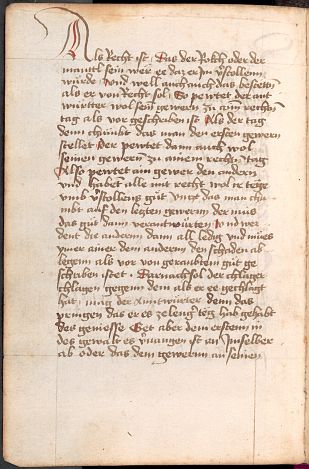 Als Recht ist Das der Rokch oder der
mantl sein wer er da er Im verstollenn
würde Vnd weil auch auch das besetzn
als er von Recht sol So pewtet der ant
wurtter wol sein gewern zu aim rechtn
tag als vor geschriben ist Als der tag
denn chumbt das man den ersten gewern
stellet Der pewtet dann auch wol
seinen gewern zu ainem rechtn tag
Also pewtet ain gewer den andern
vnd habet alle mit recht wol ir tege
vmb verstollens gut vnd das man chu
mbt auf den leczten gewernn der mues
das gut dann verantwurten Vnd wer
dent die andernn dann all ledig vnd mues
ymer ainer dem andernn den schaden ab
legenn als vor von geraubtem gut ge
schriben stet Darnach sol der chlager
chlagen gegenn dem als er ee gechlagt
hat mag der Antwurter denn das
pringen das er es ze leng teg hab gehabt
des geniesse Get aber dem erstenn in
des gewalt es vuangen ist an Im selber
ab oder das dem gewernn an seinen